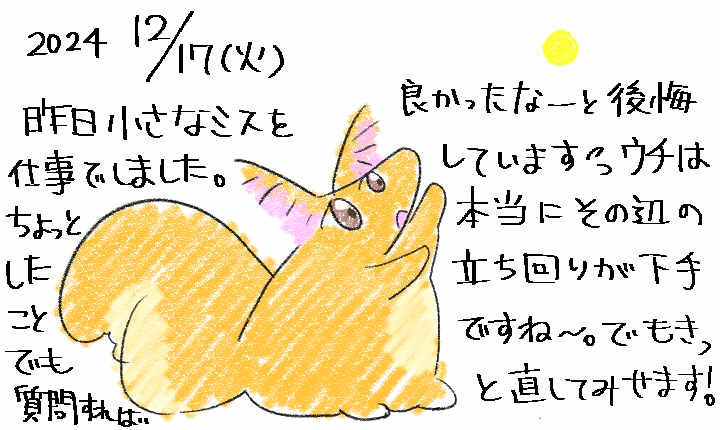 2024 12/17(火)
昨日小さなミスを
仕事でしました。
ちょっと
した
こと
でも
質問すれば
良かったなーと後悔
しています💦ウチは
本当にその辺の
立ち回りが下手
ですね〜。でもきっ
と直してみせます!